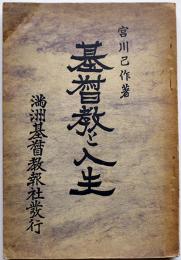 宮川己作著
基督教と人生
満洲基督教報社発行